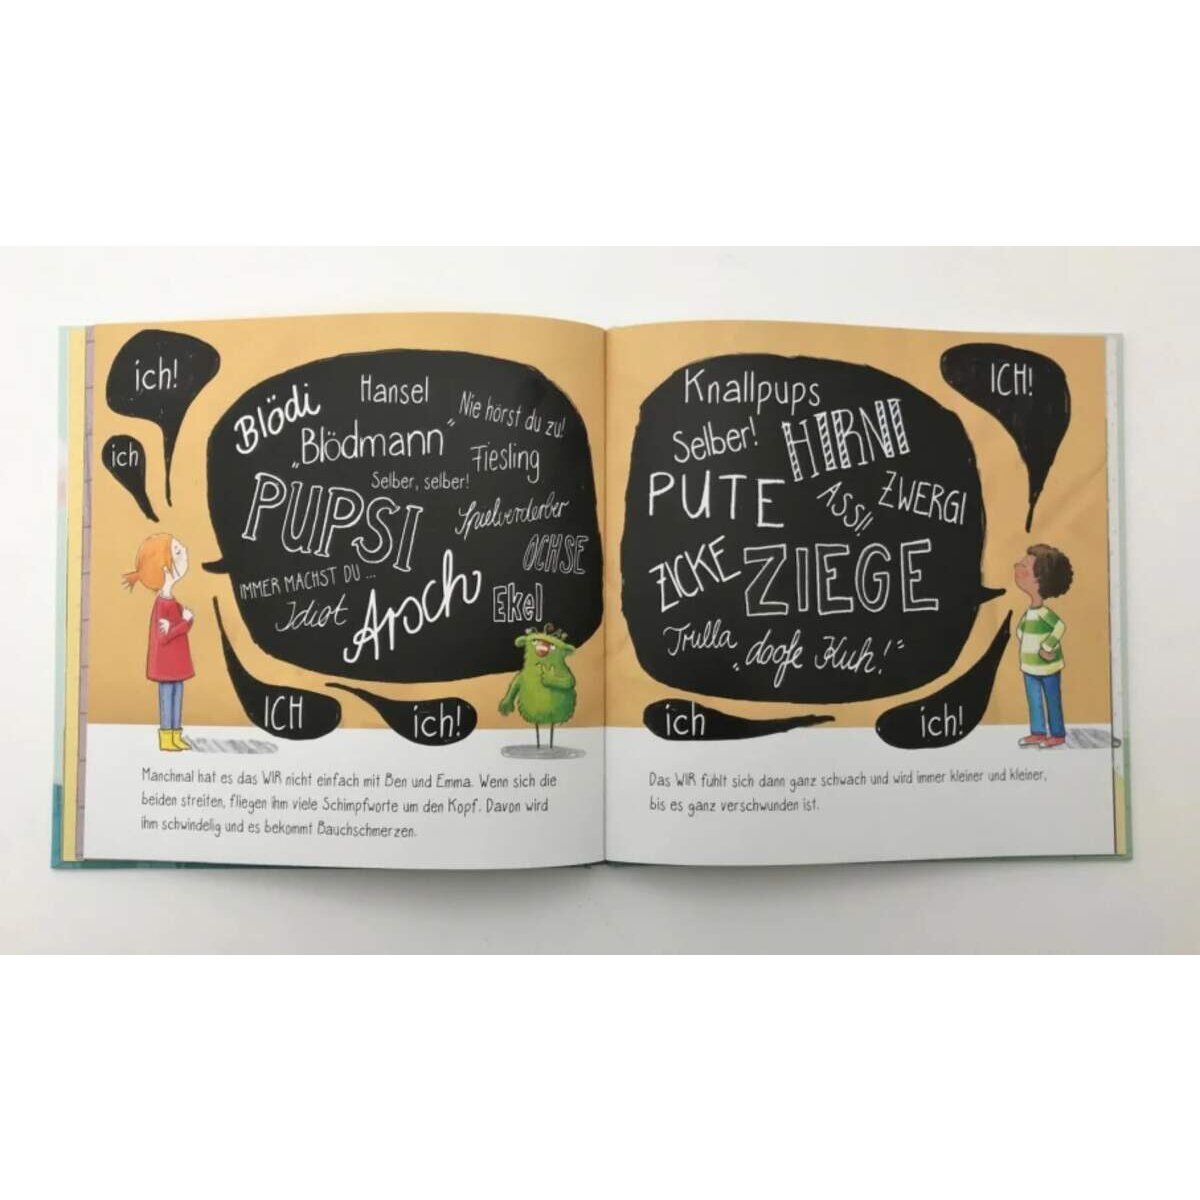 ich!
ich
Blödi
Hansel
Nie hörst du zu!
„Blödmann"
Fiesling
Selber, selber!
PUPSI
Spielverderber
OCHSE
IMMER MACHST DU ...
Idiot
Arsch
Ekel
ICH
ich!
Manchmal hat es das WIR nicht einfach mit Ben und Emma. Wenn sich die
beiden streiten, fliegen ihm viele Schimpfworte um den Kopf. Davon wird
ihm schwindelig und es bekommt Bauchschmerzen.
Knallpups
ICH!
Selber!
HIRNI
PUTE
ASS!!
ZWERGI
ZICKE
ZIEGE
Trulla
„doofe Kuh!"
ich
ich!
Das WIR fühlt sich dann ganz schwach und wird immer kleiner und kleiner,
bis es ganz verschwunden ist.